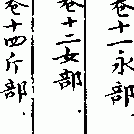 卷十一永部
卷十二女部.
卷十四斤部.